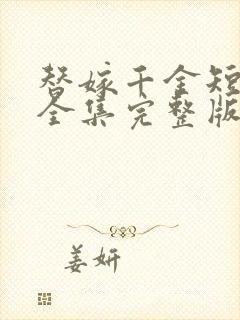 替嫁千金短
全集完整版
姜妍